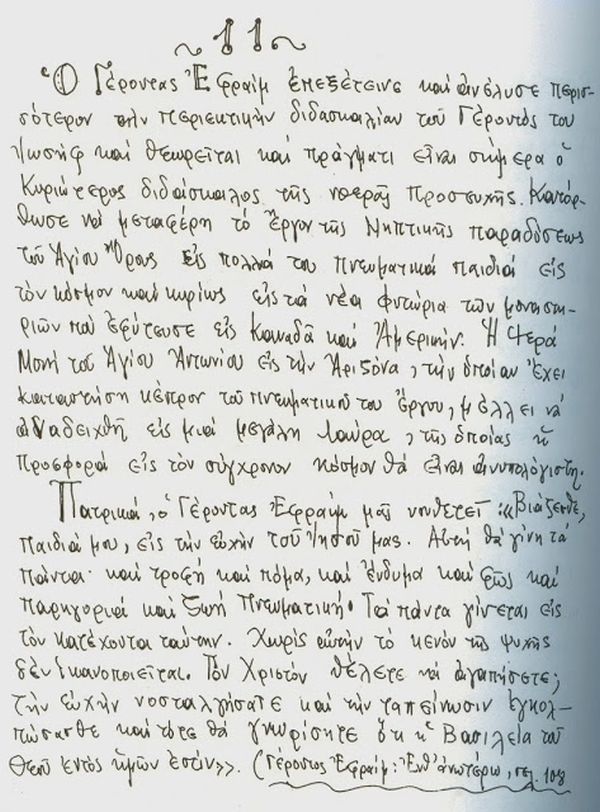 11
Ὁ Γέροντας Ἐφραίμ ἐπεξέτεινε καί ἀνέλυσε περισ-
σότερον τήν περιεκτικήν διδασκαλίαν τοῦ Γέροντός του
Ἰωσήφ καί θεωρεῖται καί πράγματι εἶναι σήμερα ὁ
Κυριώτερος διδάσκαλος τῆς νοερᾶς προσευχῆς. Κατώρ-
θωσε νά μεταφέρη τό ἔργον τῆς Νηπτικῆς παραδόσεως
τοῦ Ἁγίου Ὄρους εἰς πολλά του πνευματικά παιδιά εἰς
τὸν κόσμον καί κυρίως εἰς τά νέα φυτώρια τῶν μοναστη-
ριῶν πού ἐφύτευσε εἰς Καναδᾶ καί Ἀμερικήν. Ἡ Ἱερά
Μονή τοῦ Ἁγίου Ἀντωνίου εἰς τήν Ἀριζόνα, τήν ὁποίαν ἔχει
καταστήση κέντρον τοῦ πνευματικοῦ του ἔργου, μέλλει νά
ἀναδειχθῆ εἰς μιά μεγάλη Λαύρα, τῆς ὁποίας ἡ
προσφορά εἰς τὸν σύγχρονον κόσμον θά εἶναι ἀνυπολόγιστη.
Πατρικά, ὁ Γέροντας Ἐφραίμ μᾶς νουθετεῖ: «Βιάζεσθε,
παιδιά μου, εἰς τήν εὐχήν τοῦ Ἰησοῦ μας. Αὐτή θά γίνη τά
πάντα· καί τροφή καί πόμα, καί ἔνδυμα καί φῶς καί
παρηγοριά καί ζωή Πνευματική. Τά πάντα γίνεται εἰς
τὸν κατέχοντα ταύτην. Χωρίς αὐτήν τό κενόν τῆς ψυχῆς
δέν ἱκανοποιεῖται. Τόν Χριστόν θέλετε νά ἀγαπήσετε;
Τήν εὐχήν νοσταλγήσατε καί τήν ταπείνωσιν ἐγκολ-
πώσασθε καί τότε θά γνωρίσητε ὅτι ἡ Βασιλεία τοῦ
Θεοῦ ἐντός ἡμῶν ἐστίν». (Γέροντος Ἐφραίμ: Ἐνθ' ἀνωτέρω, σελ. 108